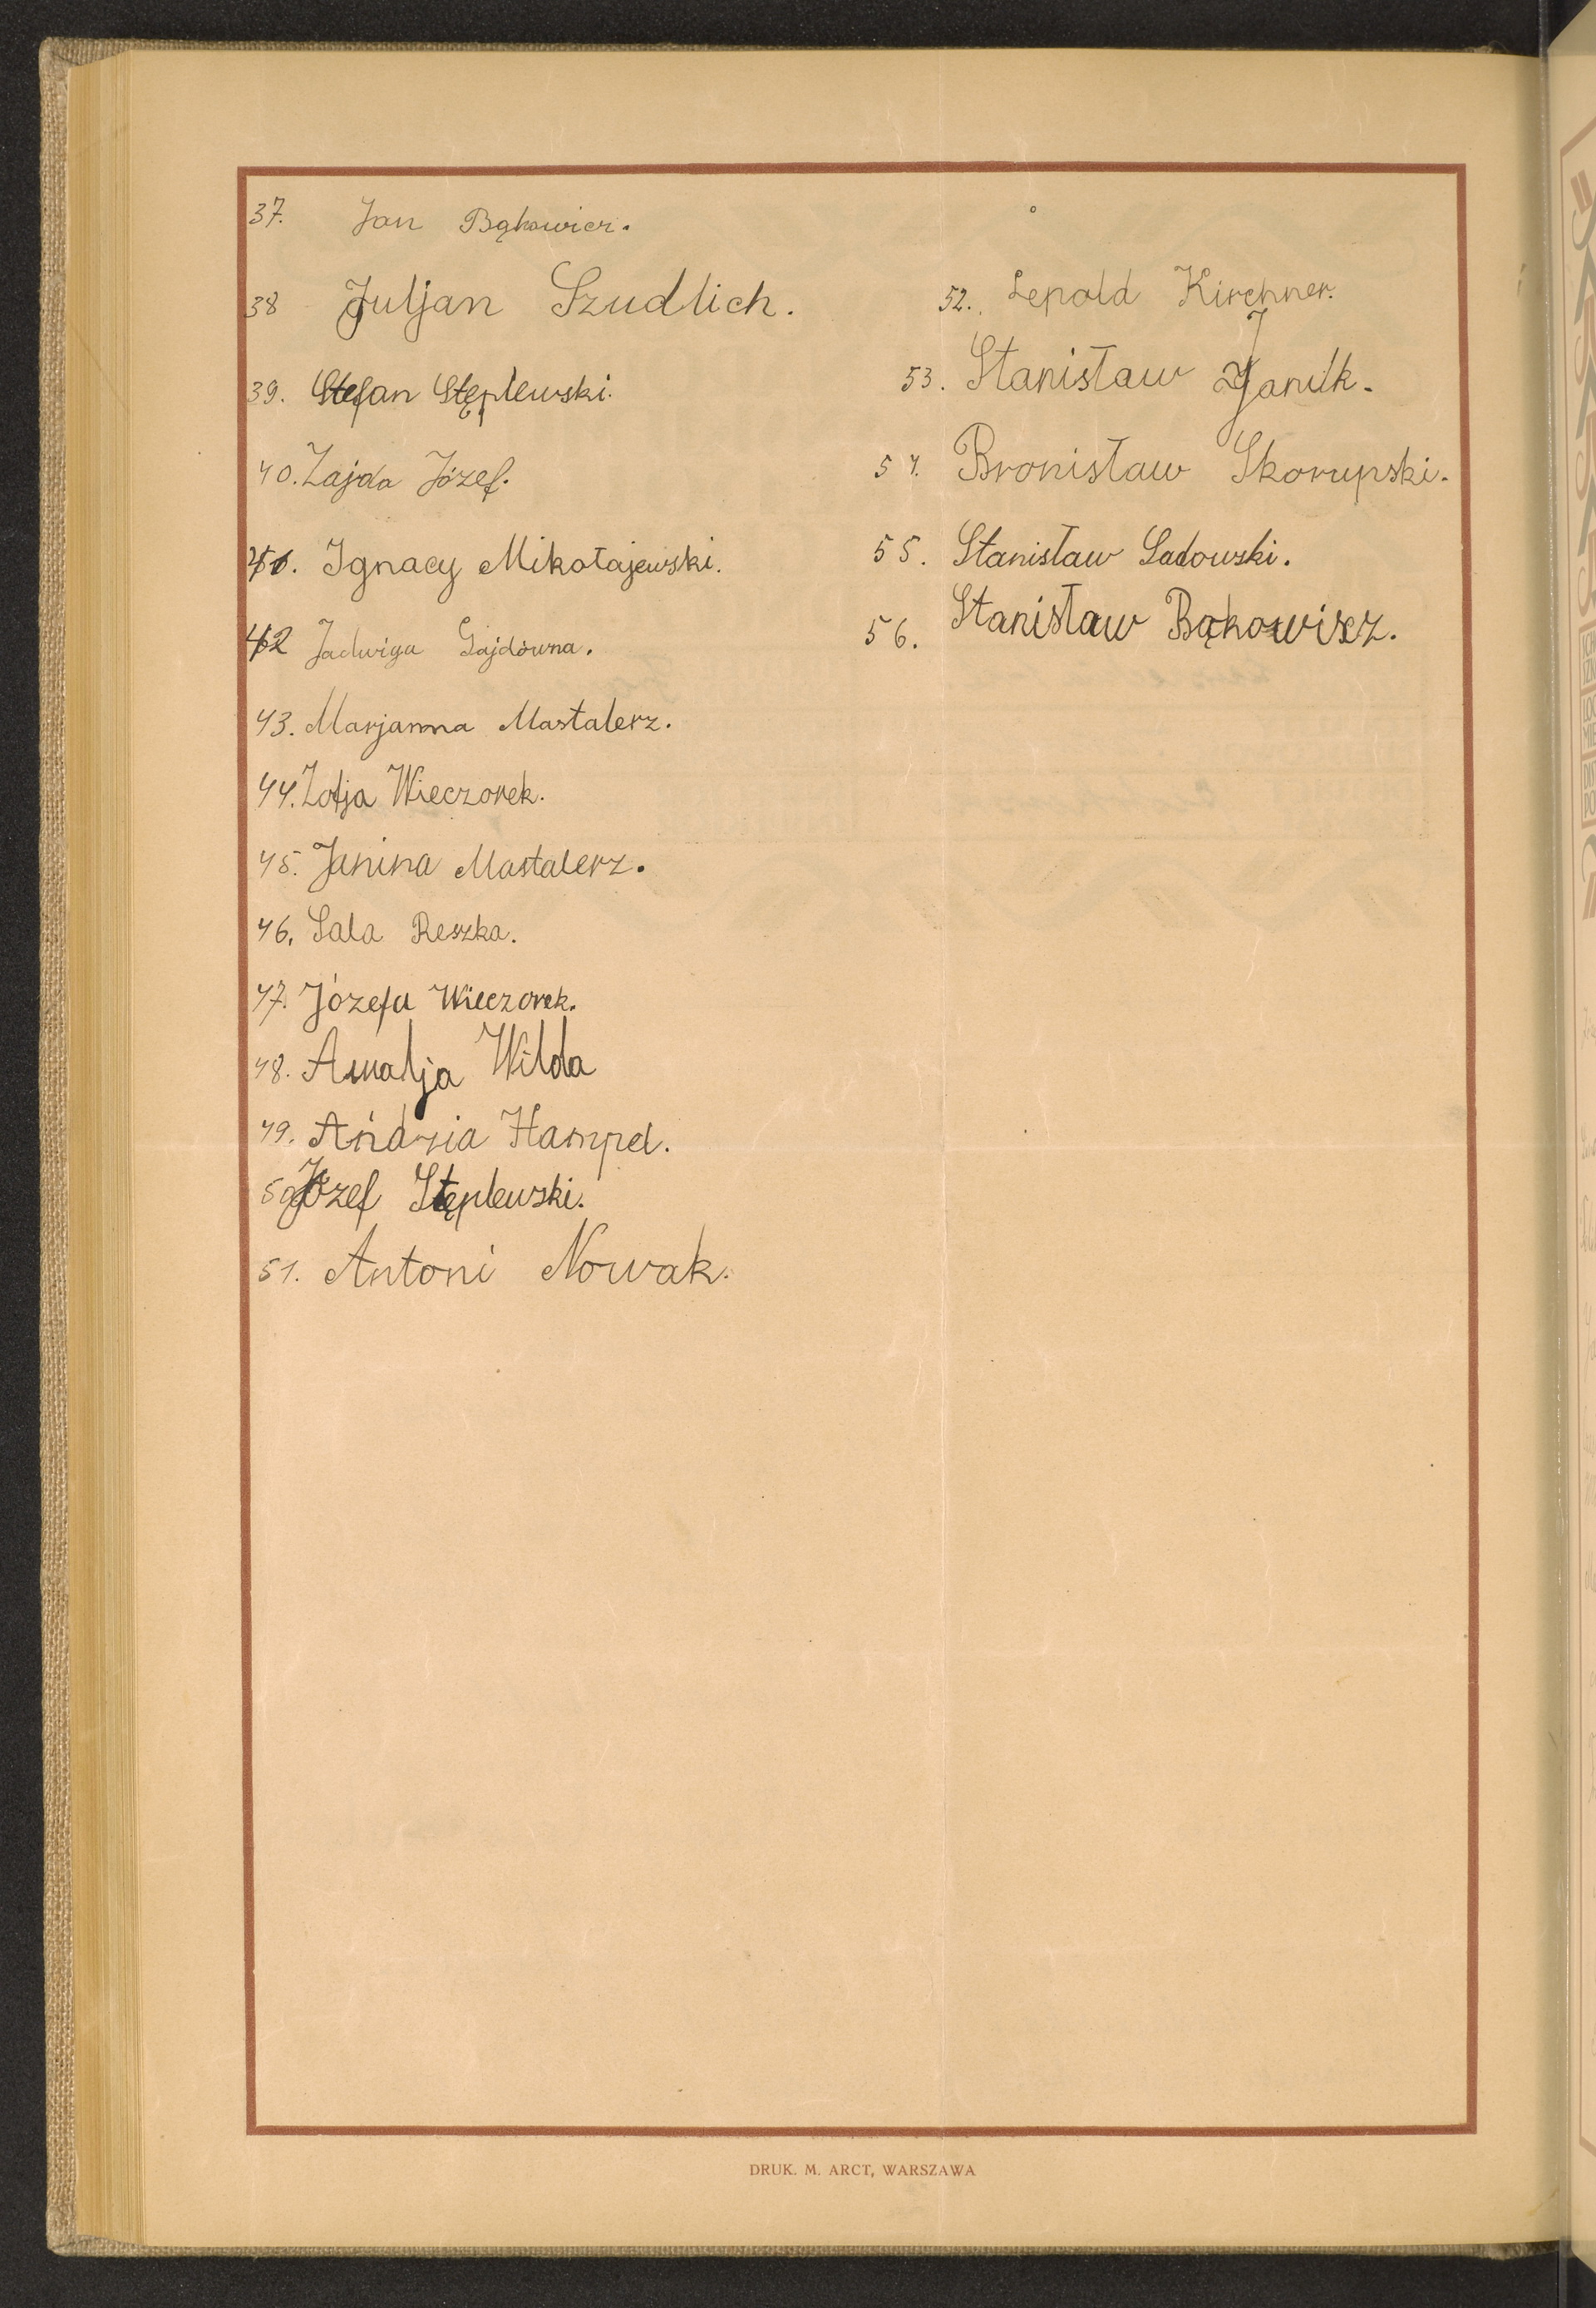 37. Jan Bąkowicz.
38 Juljan Szudlich.
39. Stefan Stęplewski.
40. Zajda Józef.
41. Ignacy Mikołajewski.
42 Jadwiga Gajdówna.
43. Marjanna Mastalerz.
44. Zofja Wieczorek.
45. Janina Mastalerz.
46. Sala Reszka.
47. Józefa Wieczorek.
48. Amalja Wilda
49. Andzia Hampel.
50 Józef Stęplewski.
51. Antoni Nowak.
52. Lepold Kirchner.
53. Stanisław Janik.
54. Bronisław Skorupski.
55. Stanisław Sadowski.
56. Stanisław Bąkowicz.
DRUK. M. ARCT, WARSZAWA